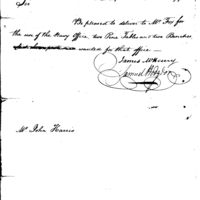 Sir
Be pleased to deliver to Mr Fox for
the use of the Navy Office, two Pine Tables and two Benches
wanted for that office —
James McHenry
Samuel Hodgdon
Mr John Harris